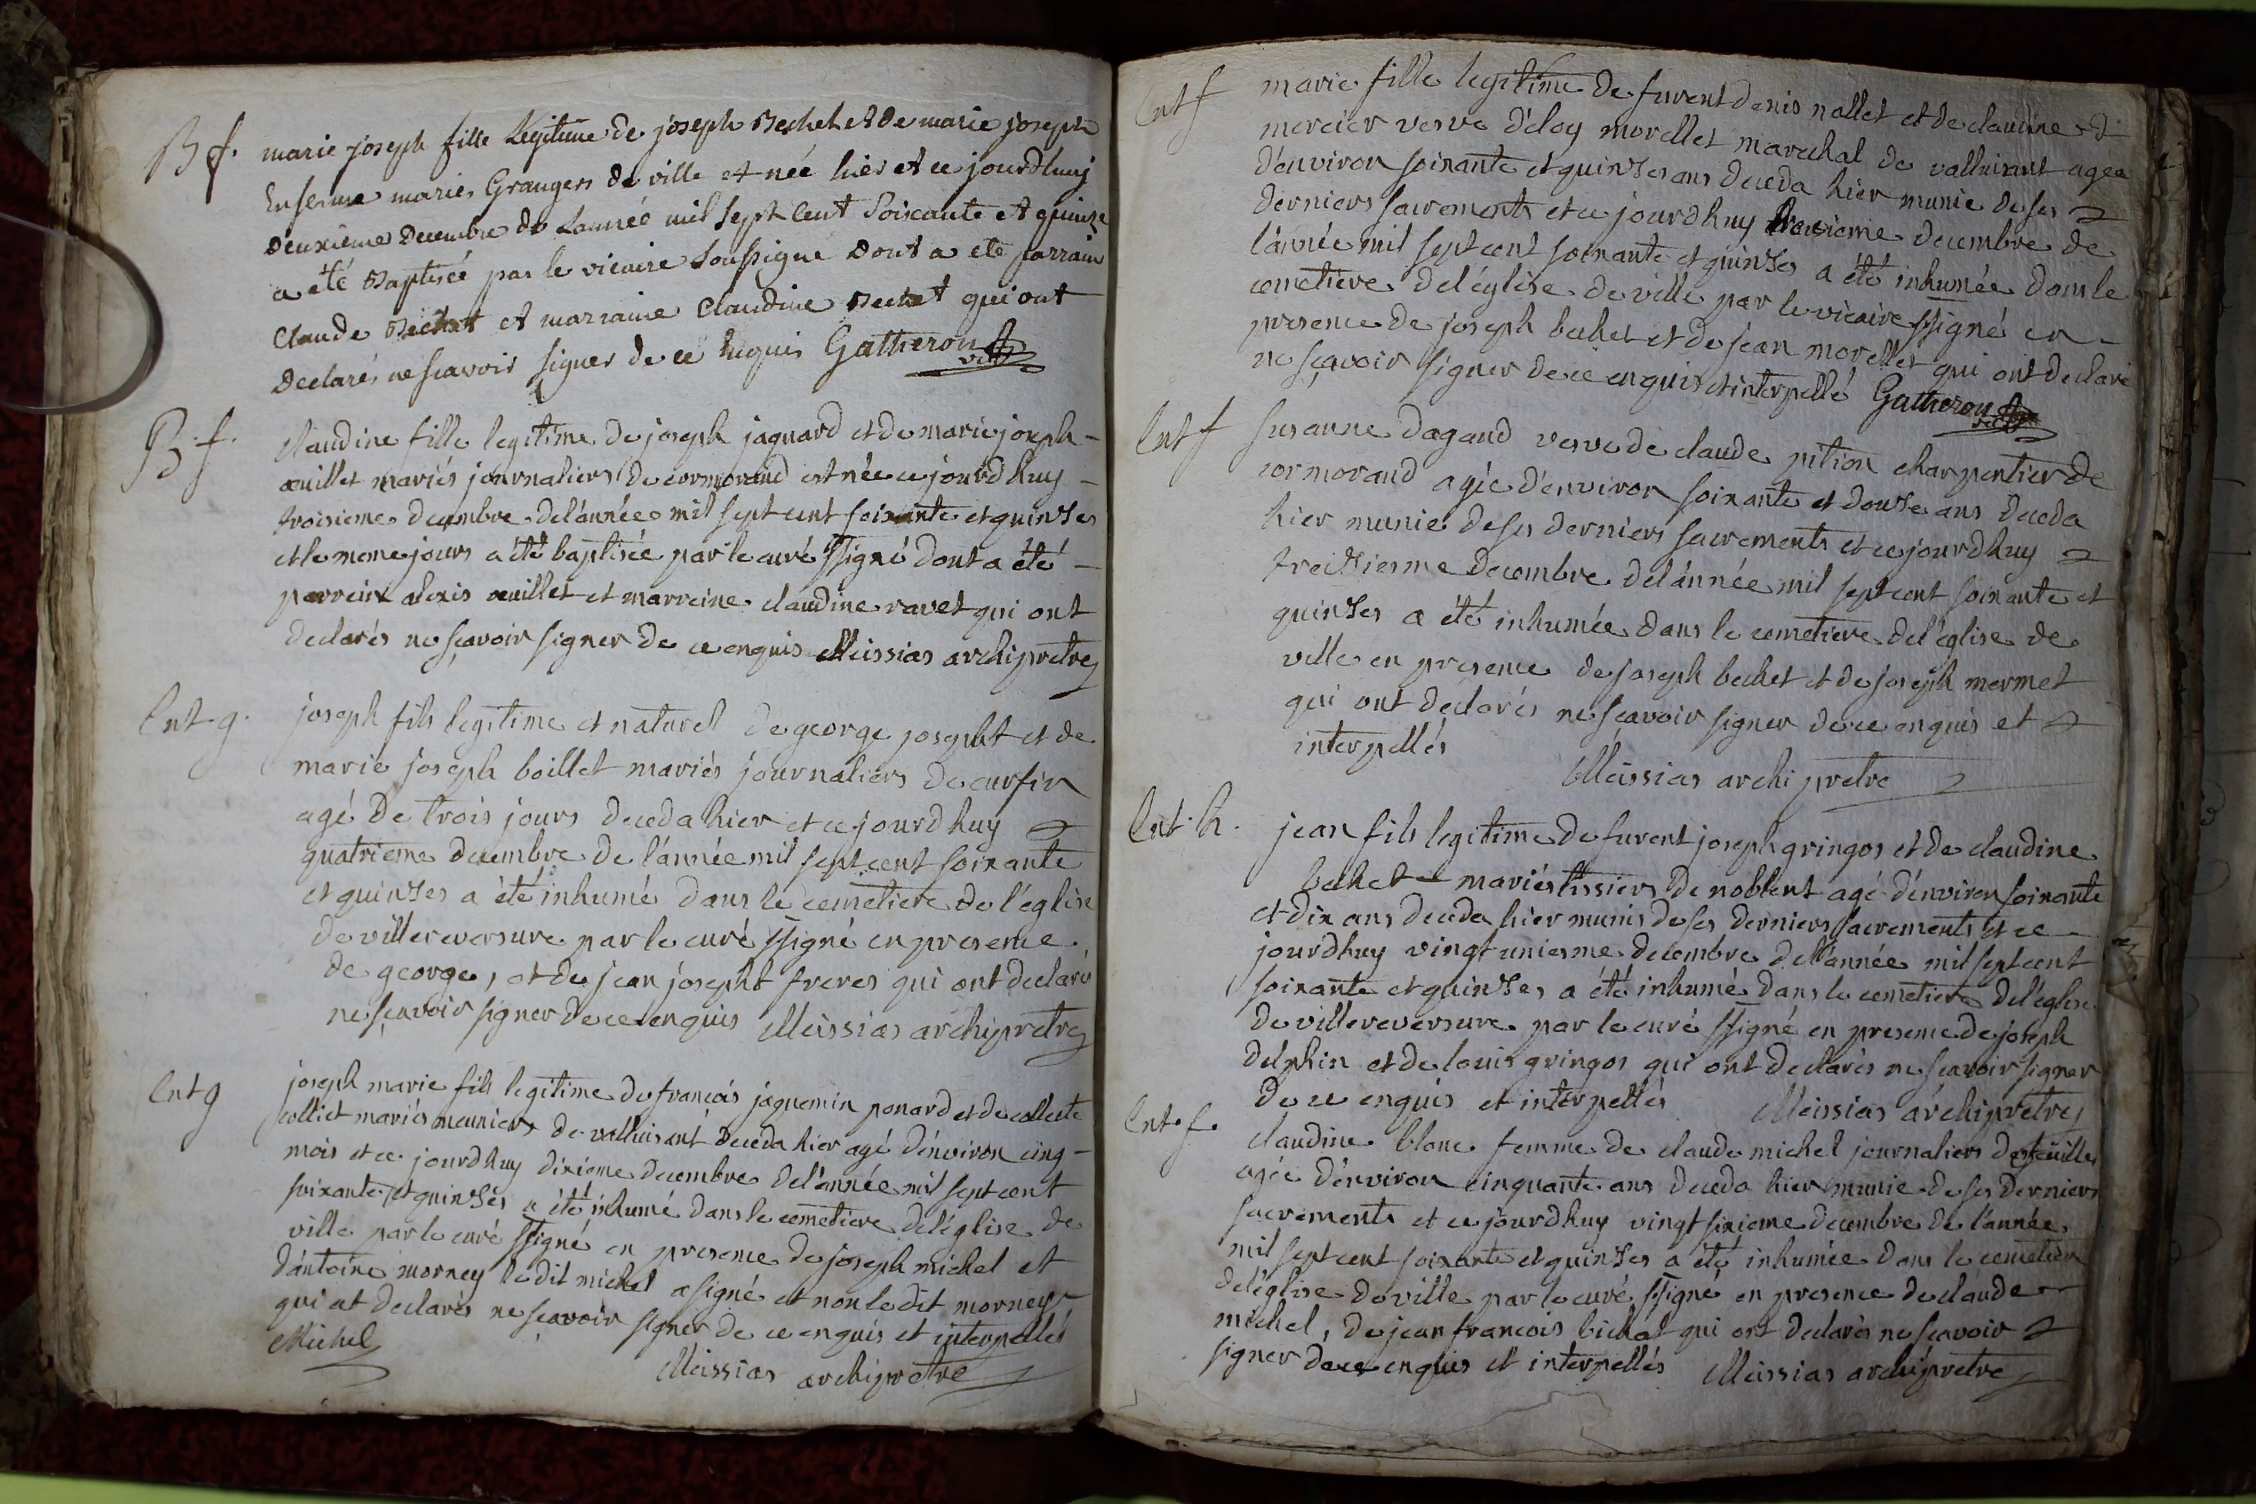 B f. marie joseph fille Legitime de joseph Bechet et de marie joseph
mariés Grangers de ville et née hier et ce jourdhuy
deuxieme Decembre de L'année mil sept Cent Soixante et quinze
a été Baptisée par le vicaire Soussigné Dont a été parrain
Claude Bechet et marraine Claudine Bechet qui ont
Declarés ne scavoir signer de ce Enquis Gatheron vic
B. f. claudine fille legitime de joseph jaquard et de marie joseph -
œuillet mariés journaliers de cormorand est née ce jourdhuy -
troisieme decembre de l'année mil sept cent soixante et quinzes
et le meme jours a été baptisée par le curé ssigné dont a été -
parrein alexis œuillet et marreine claudine ravet qui ont
declarés ne sçavoir signer de ce enquis Meissias archipretre
Ent. g. joseph fils legitime et naturel de george josepht et de
marie joseph boillet mariés journaliers de curfin
agé de trois jours deceda hier et ce jourdhuy
quatrieme decembre de l'année mil sept cent soixante
et quinzes a été inhumé dans le cemetiere de l'église
de villereversure par le curé ssigné en presence
de george, et de jean josepht freres qui ont declarés
ne sçavoir signer de ce enquis Meissias archipretre
Ent g joseph marie fils legitime de françois jaquemin ponard et de collecte
colliet mariés meuniers de valluisant deceda hier agé d'environ cinq -
mois et ce jourdhuy dixieme decembre de l'année mil sept cent
soixante et quinzes a été inhumé dans le cemetiere de l'église de
ville par le curé ssigné en presence de joseph michel et
d'antoine morney le dit michel a signé et non le dit morney
qui at declarés ne sçavoir signer de ce enquis et interpellés
Michel
Meissias archipretre
Ent f marie fille legitime de furent denis nallet et de claudine
mercier vesve d'éloy morellet marechal de valluisant agée
d'environ soixante et quinzes ans deceda hier munie de ses
derniers sacrements et ce jourdhuy troisieme decembre de
l'année mil sept cent soixante et quinzes a été inhumée dans le
cemetiere de l'église de ville par le vicaire ssigné en -
presence de joseph bechet et de jean morellet qui ont declaré
ne sçavoir signer de ce enquis et interpellé Gatheron vic
Ent f susanne dagand vesve de claude pition charpentier de
cormorand agée d'environ soixante et douze ans deceda
hier munie de ses derniers sacrements et ce jourdhuy
treiziesme decembre de l'année mil sept cent soixante et
quinzes a été inhumée dans le cemetiere de l'église de
ville en presence de joseph bechet et de joseph mermet
qui ont declarés ne sçavoir signer de ce enquis et
interpellés
Meissias archipretre
Ent. h. jean fils legitime de furent joseph gringos et de claudine
bechet mariés tissiers de noblent agé d'environ soixante
et dix ans deceda hier munis de ses derniers sacrements et ce -
jourdhuy vingt uniesme decembre de l'année mil sept cent
soixante et quinzes a été inhumé dans le cemetiere de l'église
de villereversure par le curé ssigné en presence de joseph
delphin et de louis gringos qui ont declarés ne sçavoir signer
de ce enquis et interpellés Meissias archipretre
Ent. f. claudine blanc femme de claude michel journaliers
agée d'environ cinquante ans deceda hier munie de ses derniers
sacrements et ce jourdhuy vingt sixieme decembre de l'année
mil sept cent soixante et quinzes a été inhumée dans le cemetiere
de l'église de ville par le curé ssigné en presence de claude
michel, de jean francois bichat qui ont declarés ne sçavoir
signer de ce enquis et interpellés Meissias archipretre